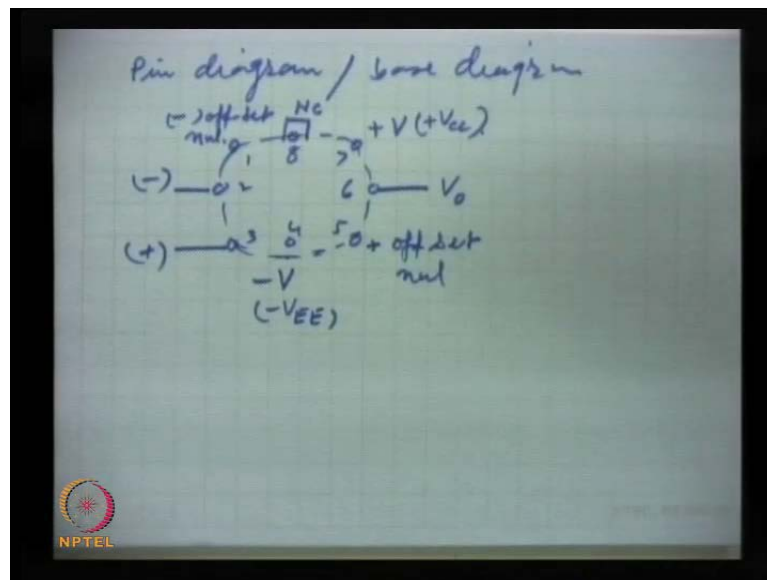 Pin diagram / base diagram
(-) off-set
nul.
NC
+ V (+Vcc)
1
8
7
(-)
2
6
Vo
(+)
3
4
5
+ off set
nul
- V
(-VEE)
NPTEL